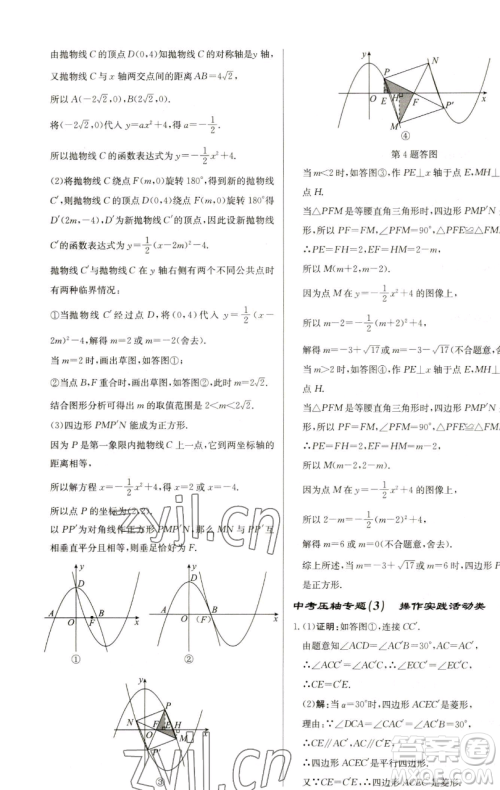 由抛物线 C 的顶点 D(0,4)知抛物线 C 的对称轴是 y 轴,
又抛物线 C 与 x 轴两交点间的距离 AB=4√2,
所以 A(-2√2,0),B(2√2,0).
将(-2√2,0)代入 y=ax²+4,得 a=-1/2.
所以抛物线 C 的函数表达式为 y=-1/2x²+4.
(2)将抛物线 C 绕点 F(m,0)旋转 180°得到新的抛物线
C′,则抛物线 C 的顶点 D(0,4)绕点 F(m,0)旋转 180°得
D′(2m,-4),D′为新抛物线 C′的顶点,因此设新抛物线
C′的函数表达式为 y=1/2(x-2m)²-4.
抛物线 C′与抛物线 C 在 y 轴右侧有两个不同公共点时
有两种临界情况:
①当抛物线 C′经过点 D 时,将(0,4)代入 y=1/2(x-
2m)²-4,解得 m=2 或 m=-2(舍去).
当 m=2 时,画出草图,如答图①;
②当点 B,F 重合时,画出草图,如答图②,此时 m=2√2.
结合图形分析可得出 m 的取值范围是 2<m<2√2.
(3)四边形 PMP′N 能成为正方形.
因为 P 是第一象限内抛物线 C 上一点,它到两坐标轴的
距离相等,
所以解方程 x=-1/2x²+4,得 x=2 或 x=-4(舍去).
所以点 P 的坐标为(2,2).
以 PP′为对角线作正方形 PMP′N,那么 MN 与 PP′互
相垂直平分且相等,则垂足恰好为点 F.
y
D
O
B
x
①
y
D
O
B
(F)
x
②
y
N
P
O
E
F
H
M
P′
x
③
y
P
N
O
E
H
F
P′
M
x
④
第 4 题答图
当 m<2 时,如答图③,作 PE⊥x 轴于点 E,MH⊥
点 H.
当△PFM 是等腰直角三角形时,四边形 PMP′N
所以 PF=FM,∠PFM=90°,△PFE≌△FM
∴PE=FH=2,EF=HM=2-m,
所以 M(m+2,m-2).
因为点 M 在 y=-1/2x²+4 的图像上,
所以 m-2=-1/2(m+2)²+4,
解得 m=-3+√17或 m=-3-√17(不合题意,舍
当 m>2 时,如答图④,作 PE⊥x 轴于点 E,MH
点 H.
当△PFM 是等腰直角三角形时,四边形 PMP′N
所以 PF=FM,∠PFM=90°,△PFE≌△FM
∴PE=FH=2,EF=HM=m-2,
因为点 M 在 y=-1/2x²+4 的图像上,
所以 2-m=-1/2(m-2)²+4,
解得 m=6 或 m=0(不合题意,舍去).
综上所述,当 m=6 或
是正方形.
中考压轴专题(3) 操作实践活动类
1.(1)证明:如答图①,连接 CC′.
由题意知∠ACD=∠AC′B=30°,AC=AC′,
∴∠ACC′=∠AC′C,∴∠ECC′=∠EC′C,
∴CE=C′E.
(2)解:当 α=30°时,四边形 ACEC′是菱形,
理由:∵∠DCA=∠CAC′=∠AC′B=30°,
∴CE∥AC′,AC∥C′E,
∴四边形 ACEC′是平行四边形.
又∵CE=C′E,∴四边形 ACEC′是菱形.
zyjl.cn
zyjl.cn
答案圈
MXQE.COM